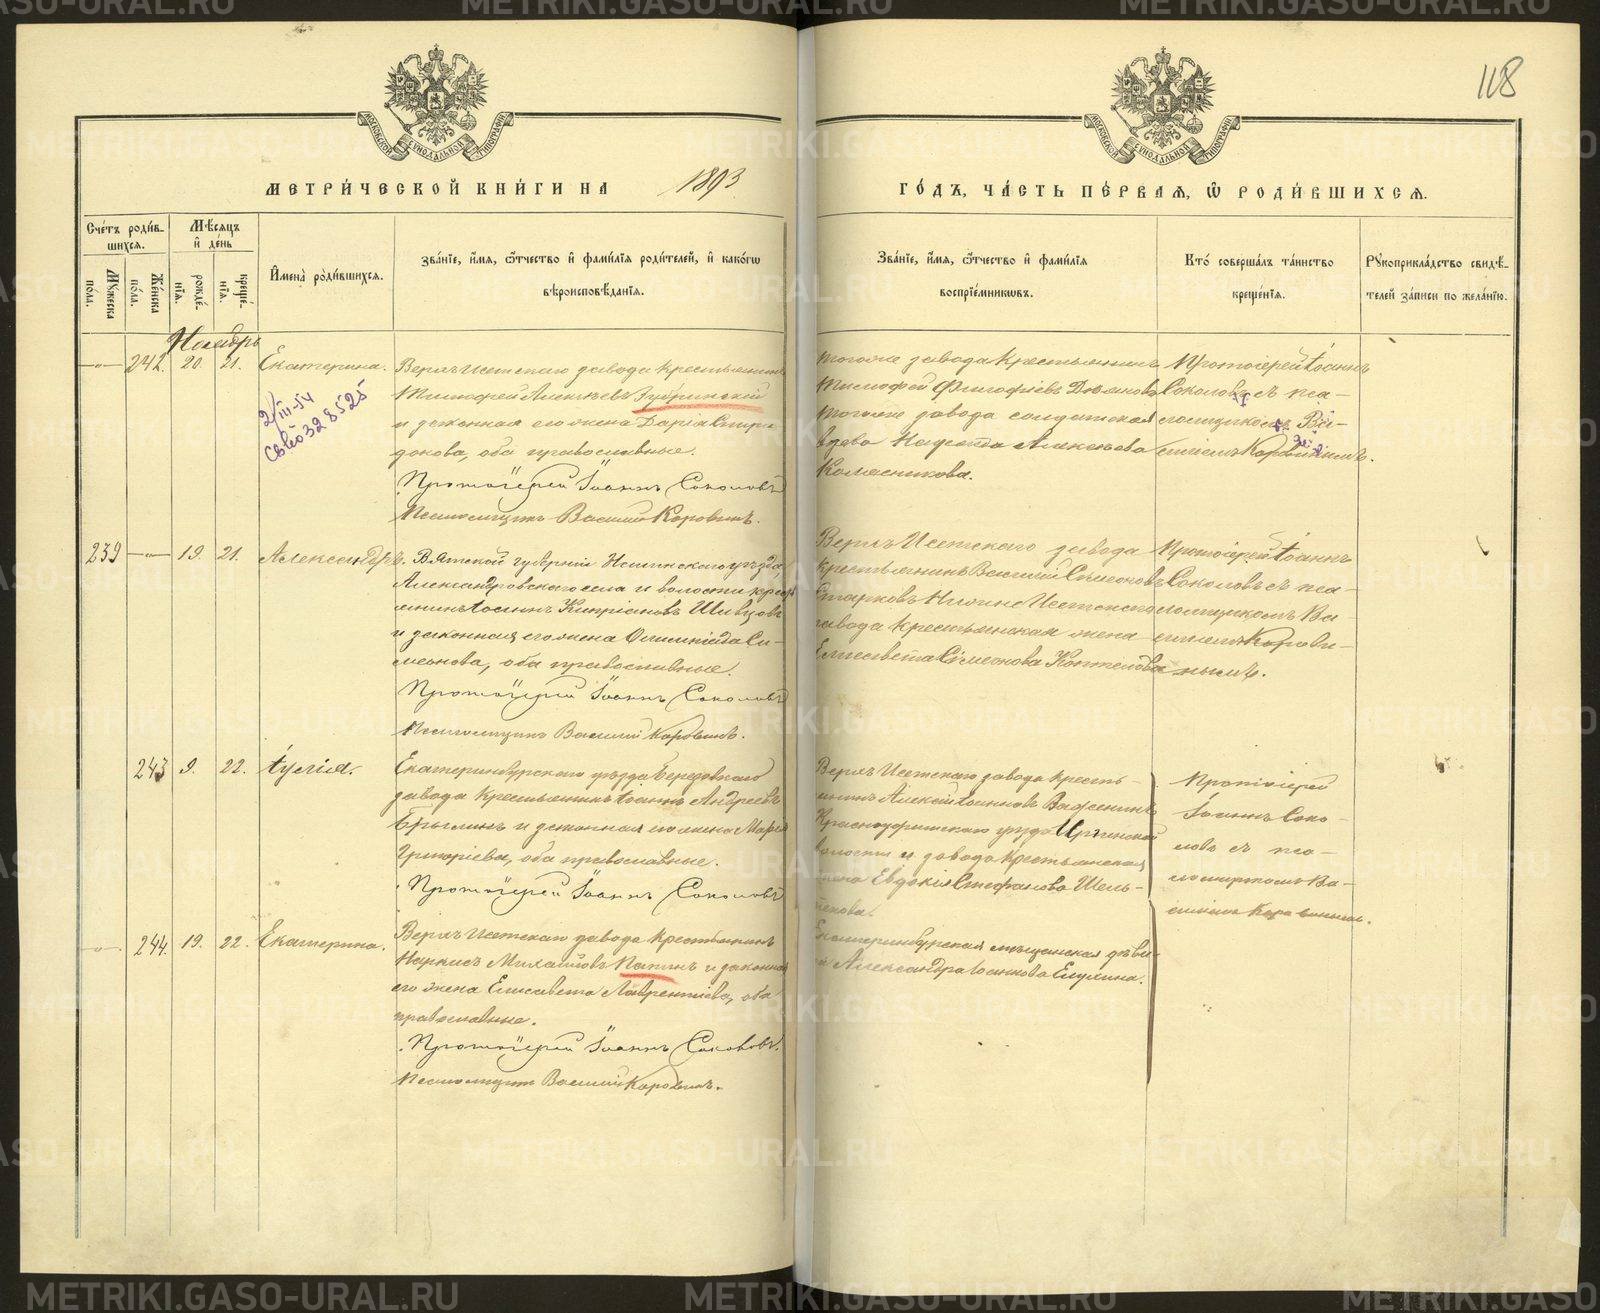 118
МЕТРИЧЕСКОЙ КНИГИ НА 1893
ГОДЪ, ЧАСТЬ ПЕРВАЯ, Ѡ РОДИВШИХСЯ.
Счетъ родив-
шихся.
Мѣсяцъ
и день
Мужеска
пола.
Женска
пола.
рожде-
нія.
креще-
нія.
Имена родившихся.
Званіе, имя, ѿчество и фамилія родителей, и какогω
вѣроисповѣданія.
Званіе, имя, ѿчество и фамилія
воспріемникωвъ.
Кто совершалъ таинство
крещенія.
Рукоприкладство свидѣ-
телей записи по желанію.
Ноябрь
242. 20. 21. Екатерина.
2/III-54
св-во 328525
Верхъ Исетскаго завода крестьянинъ
Тимофей Алексѣевъ Зубринскій
и законная его жена Дарія Спири-
донова, оба православные.
Протоіерей Іоаннъ Соколовъ
Псаломщикъ Василій Коровинъ.
тогоже завода крестьянинъ
Тимофей
тогоже завода солдатская
вдова Алексѣева
Колесникова.
Протоіерей Іоаннъ
Соколовъ съ пса-
ломщикомъ Ва-
силіемъ Коровинымъ.
239 19. 21. Александръ.
Вятской губерніи Нолинскаго уѣзда
Александровскаго села и волости крест
янинъ Іоаннъ Кипріановъ Шивцовъ
и законная его жена Олимпіада Си-
меонова, оба православные.
Протоіерей Іоаннъ Соколовъ
Псаломщикъ Василій Коровинъ.
Верхъ Исетскаго завода
крестьянинъ Василій Симеоновъ
Старковъ Нижне Исетскаго
завода крестьянская жена
Елисавета Симеонова Коптелова
Протоіерей Іоаннъ
Соколовъ съ пса-
ломщикомъ Ва-
силіемъ Корови-
нымъ.
243 9. 22. Іулія.
Екатеринбургскаго уѣзда Березовскаго
завода крестьянинъ Іоаннъ Андреевъ
и законная его жена Марія
Григоріева, оба православные.
Протоіерей Іоаннъ Соколовъ
Верхъ Исетскаго завода кресть-
янинъ Алексѣй Іоанновъ
Красноуфимскаго уѣзда Иргинской
волости и завода крестьянская
жена Евдокія Стефанова Шель-
Протоіерей
Іоаннъ Соко-
ловъ съ пса-
ломщикомъ Ва-
силіемъ Коровинымъ.
244. 19. 22. Екатерина.
Верхъ Исетскаго завода крестьянинъ
Наркисъ Михайловъ Папинъ и законная
его жена Елисавета Лаврентіева, оба
православные.
Протоіерей Іоаннъ Соколовъ.
Псаломщикъ Василій Коровинъ.
Екатеринбургская мѣщанская дѣви-
ца Александра Іоаннова Елулина.
METRIKI.GASO-URAL.RU